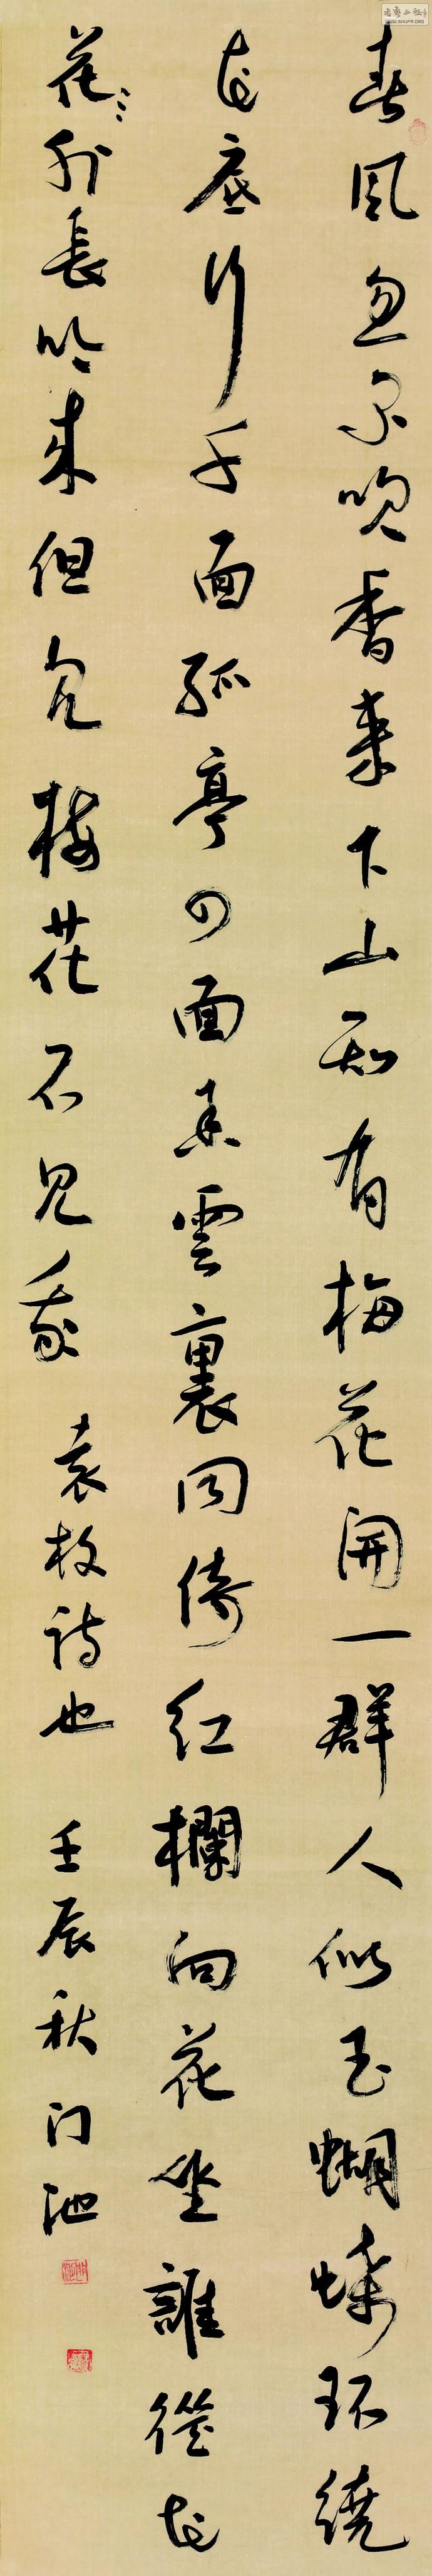 春风忽尔吹香来下山知有梅花開一群人似玉蝴蝶环繞
花底行千囬孤亭四面香雲裏同倚红欄向花坐誰從花
花外長吟来但見梅花不見我 袁枚詩也 壬辰秋门池